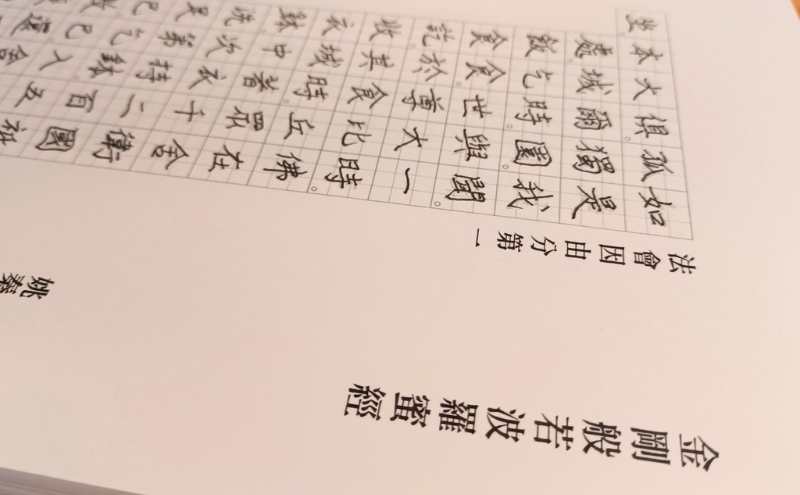 金剛般若波羅蜜經
姚秦
法會因由分第一
如是我聞。一時。佛在舍衛國祇
孤獨園。與大比丘眾千二百五
俱。爾時。世尊食時。著衣持鉢入舍
大城乞食。於其城中。次第乞已還
本處飯食訖。收衣鉢。洗足已
坐